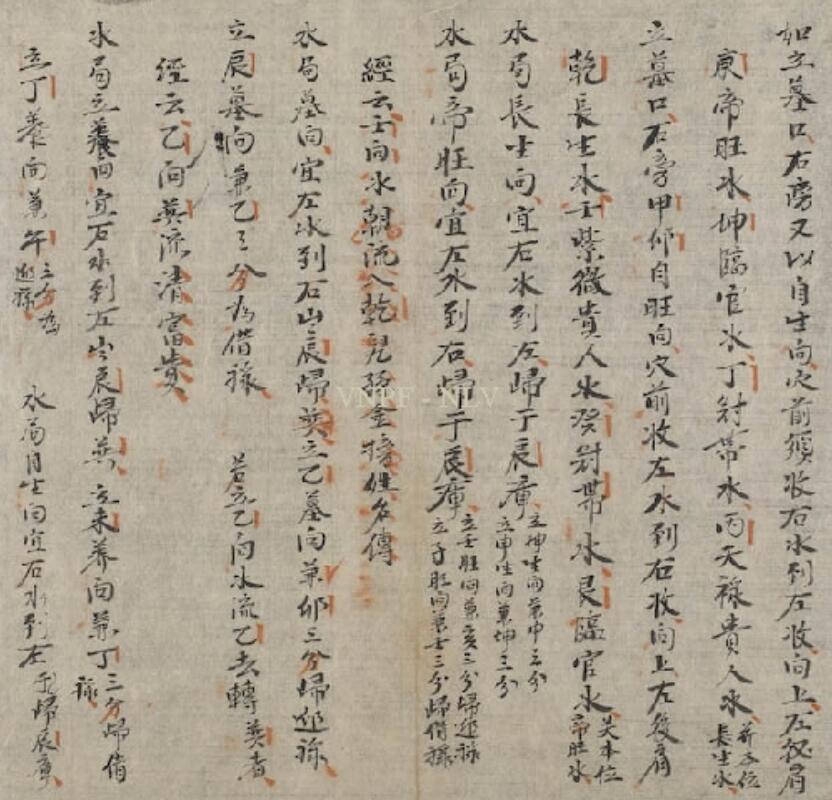 如立墓口右旁又以自生向穴前須收右水到左收向上左后肩
庚帝旺水坤臨官水丁冠帶水丙天祿貴人水并本位長生水
立墓口右旁甲卯自旺向穴前收左水到右收向上左後肩
乾長生水壬紫微貴人水癸冠帶水艮臨官水关本位帝旺水
水局長生向宜右水到左歸于辰庫立坤生向兼申三分立申生向兼坤三分
水局帝旺向宜左水到右歸于辰庫立壬旺向兼亥三分歸逊祿立子旺向兼壬三分歸借祿
經云壬向水朝流入乾兒孫金榜姓名傳
水局墓向宜左水到右出辰歸巽立乙墓向兼卯三分歸逊祿
立辰墓向兼乙三分为借祿 若立乙向水流乙去轉巽者
經云乙向巽流清富貴
水局立養向宜右水到左出辰歸巽立未養向兼丁三分歸借祿
立丁養向兼午三分為逊祿 水局自生向宜右水到左歸辰庫
VNPF - NLV